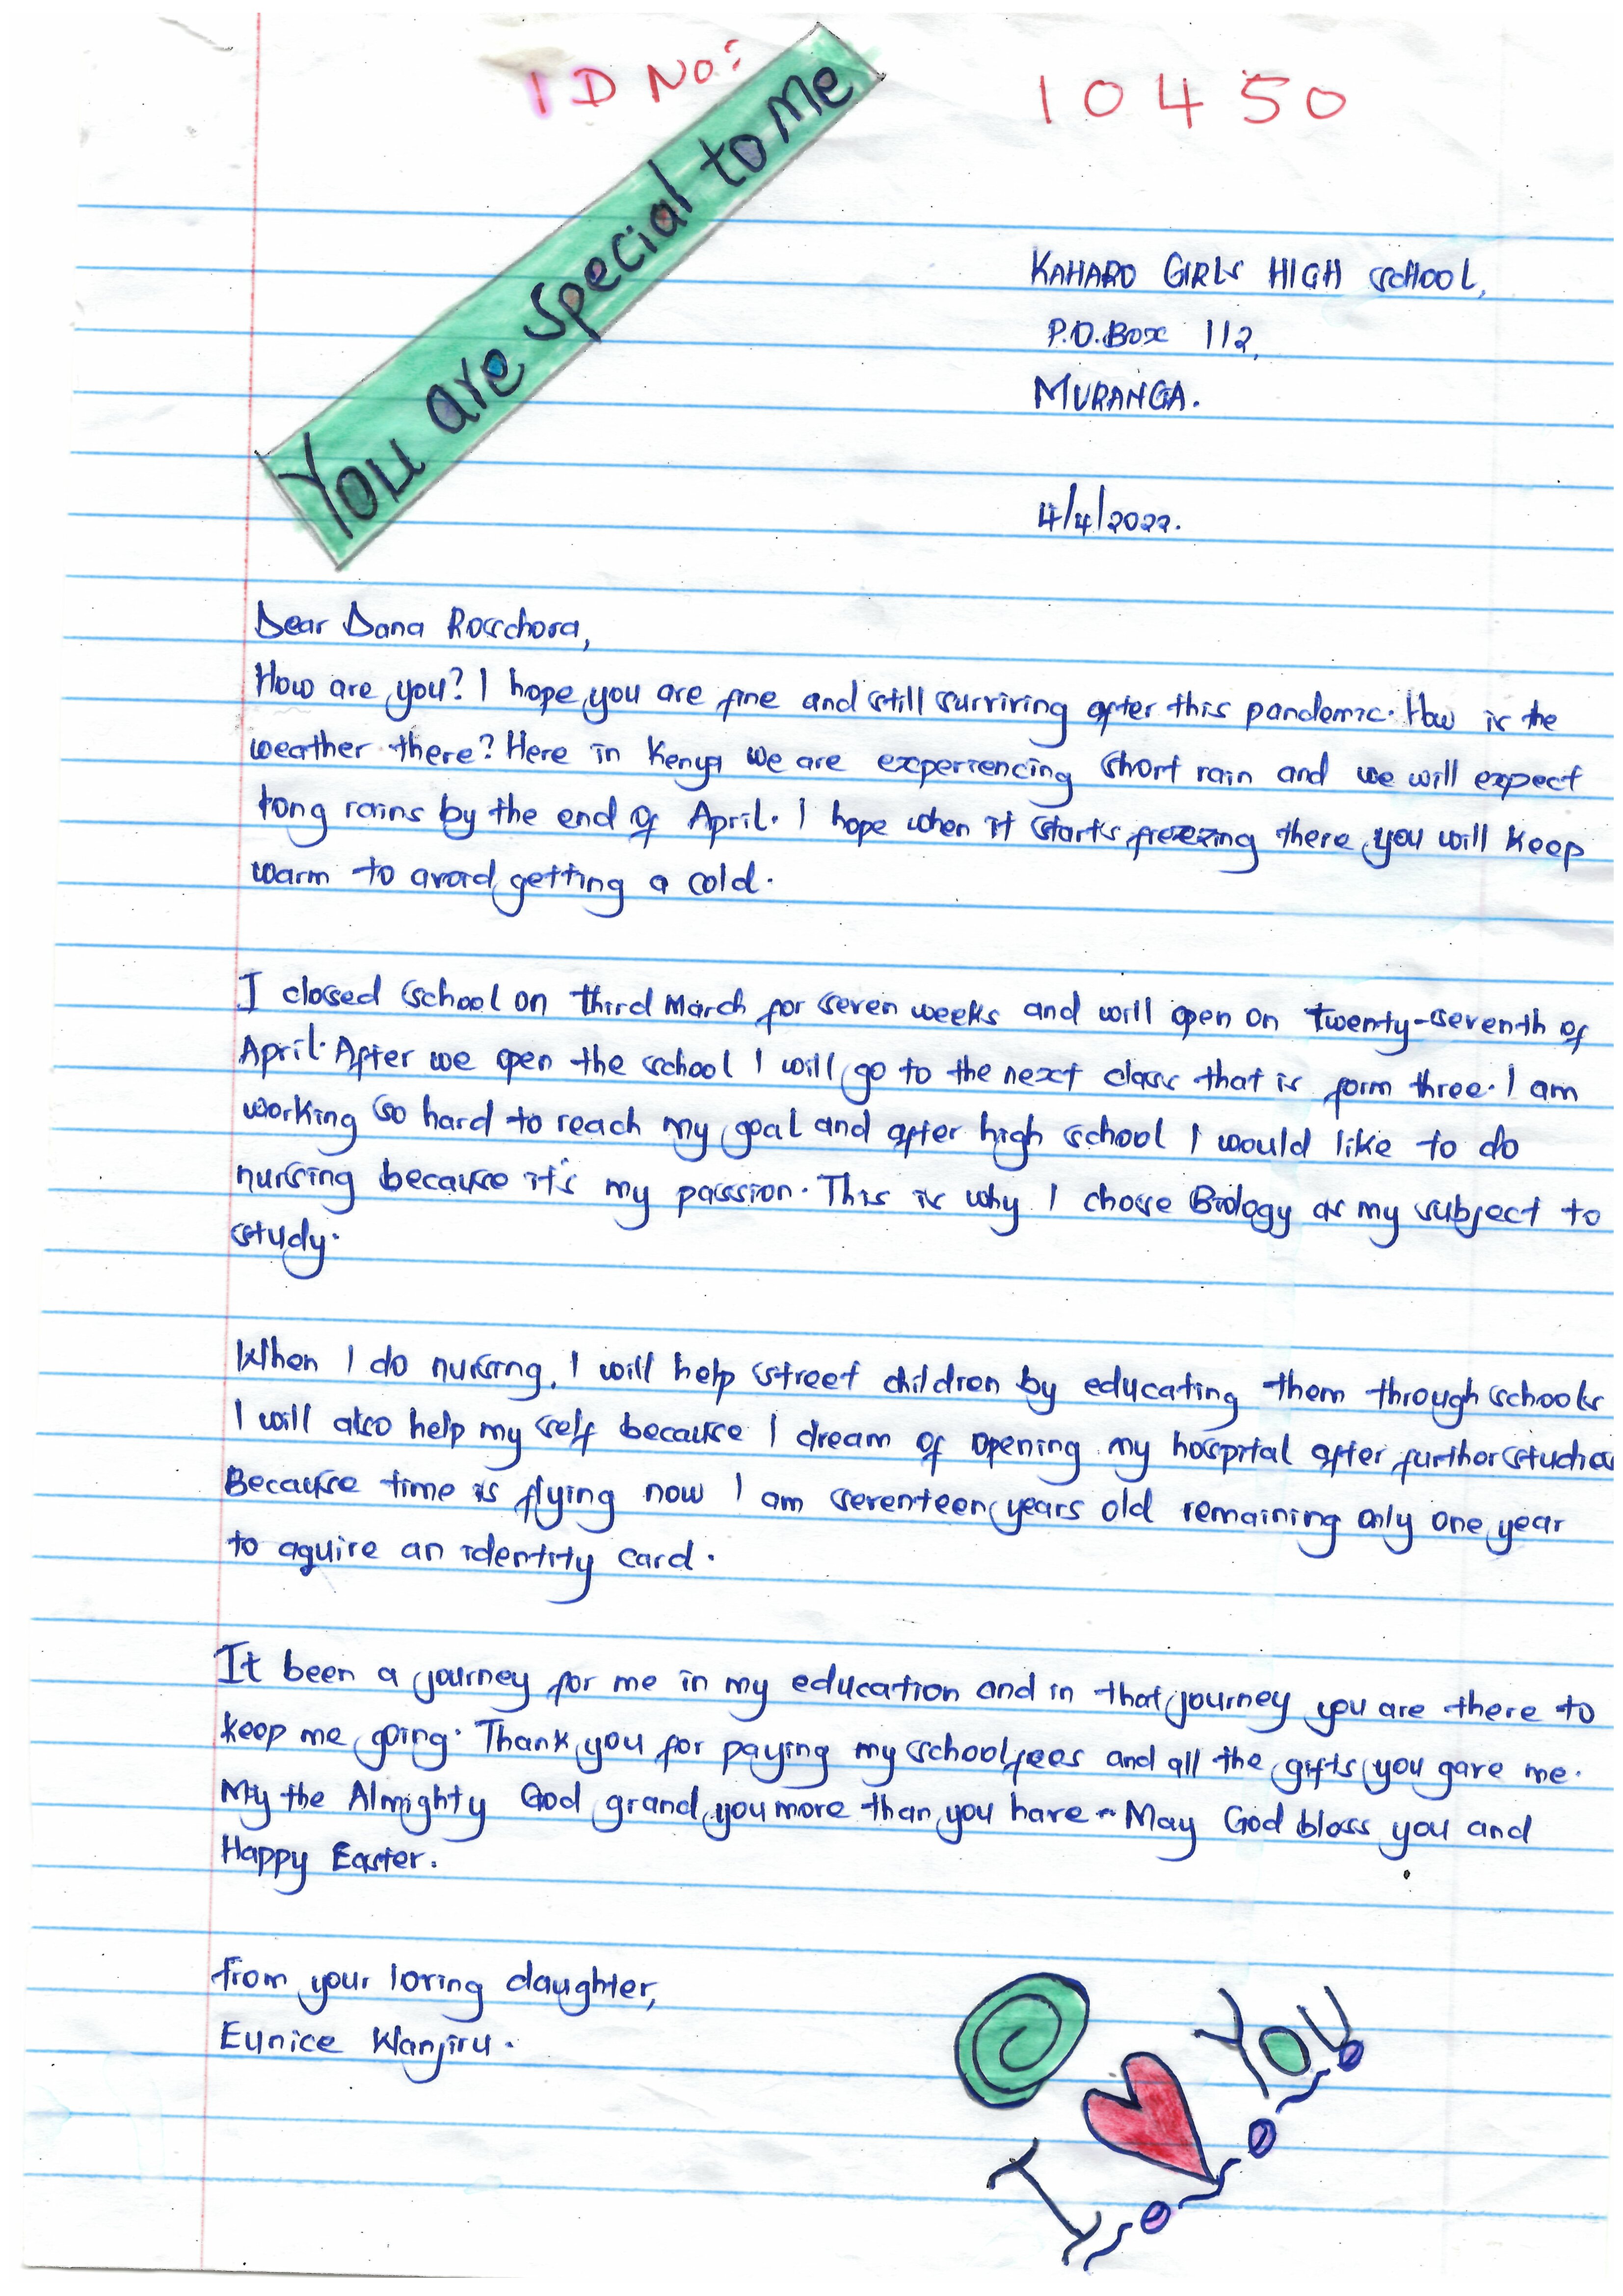 ID No: 10450
You are special to Me
KAHARO GIRLS HIGH SCHOOL,
P.O.Box 112,
MURANGA.
4/4/2022.
Dear Dana Rosschora,
How are you? I hope you are fine and still surviving after this pandemic. How is the
weather there? Here in Kenya we are experiencing short rain and we will expect
long rains by the end of April. I hope when it starts freezing there you will keep
warm to avoid getting a cold.
I closed school on third March for seven weeks and will open on twenty-seventh of
April. After we open the school I will go to the next class that is form three. I am
working so hard to reach my goal and after high school I would like to do
nursing because it's my passion. This is why I chose Biology as my subject to
study.
When I do nursing, I will help street children by educating them through schools
I will also help my self because I dream of opening my hospital after further studies
Because time is flying now I am seventeen years old remaining only one year
to aquire an identity card.
It been a journey for me in my education and in that journey you are there to
keep me going. Thank you for paying my school fees and all the gifts you gave me.
May the Almighty God grand you more than you have. May God bless you and
Happy Easter.
From your loving daughter,
Eunice Wanjiru.
I YOU